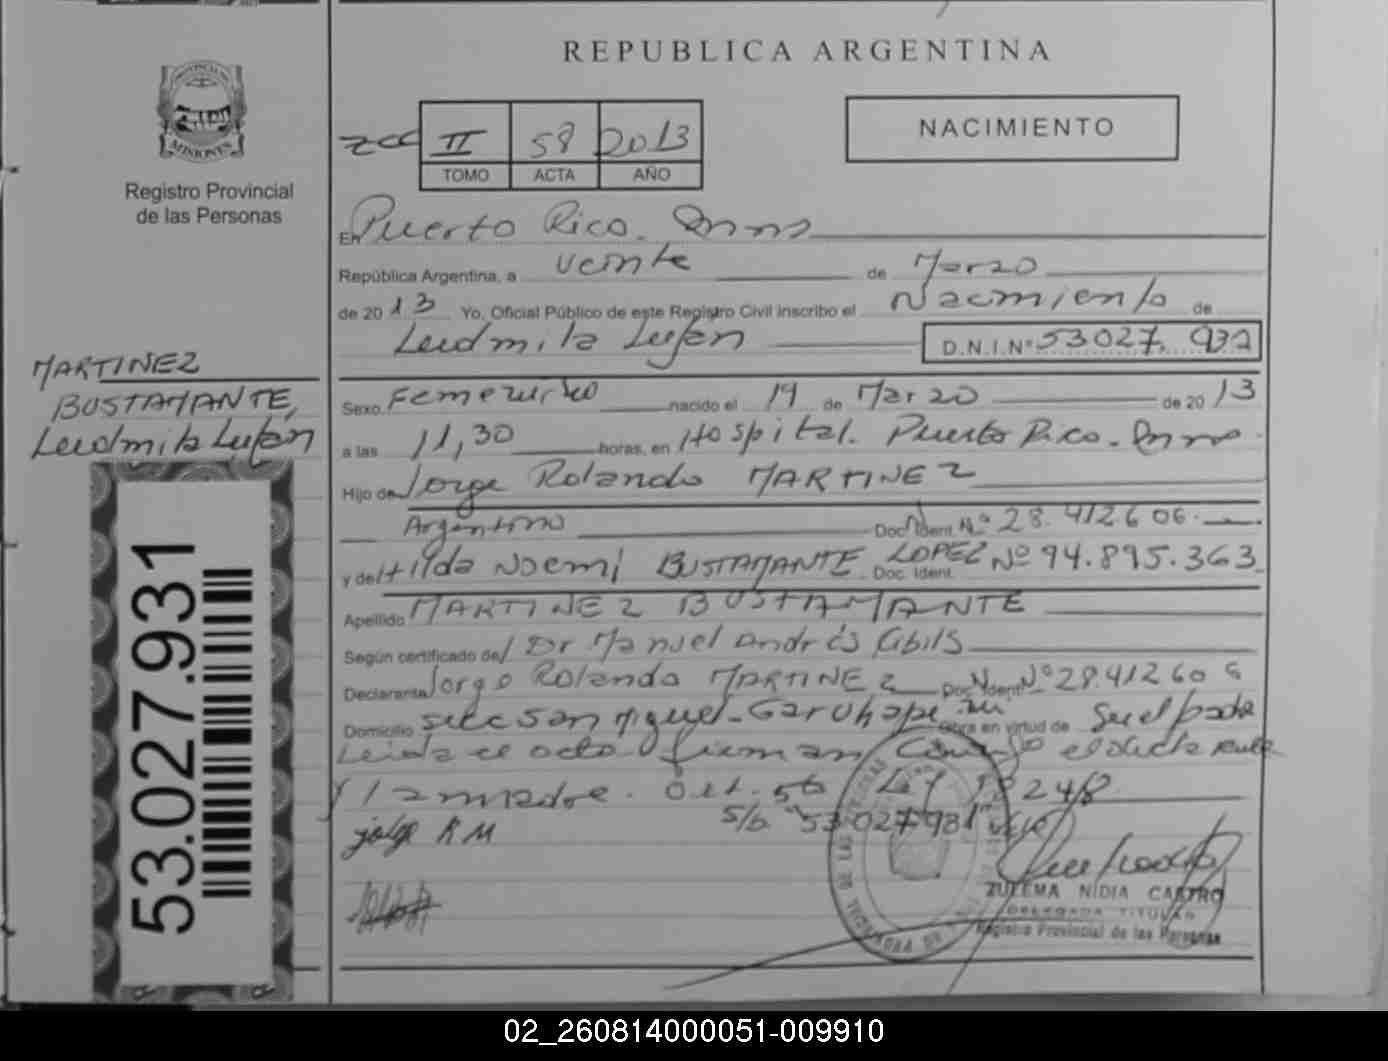 REPUBLICA ARGENTINA
PROVINCIA DE
MISIONES
Registro Provincial
de las Personas
II 58 2013
TOMO ACTA AÑO
NACIMIENTO
En Puerto Rico
República Argentina, a veinte de Marzo
de 2013 Yo, Oficial Público de este Registro Civil inscribo el Nacimiento de
Ludmila Luján D.N.I.Nº 53027. 932
MARTINEZ
BUSTAMANTE,
Ludmila Luján
53.027.931
Sexo Femenino nacido el 19 de Marzo de 2013
a las 11,30 horas, en Hospital. Puerto Rico
Hijo de Jorge Rolando MARTINEZ
Argentino Doc. Ident. Nº 28.412606.
y de Hilda Noemi BUSTAMANTE LOPEZ Doc. Ident. Nº 94.895.363
Apellido MARTINEZ BUSTAMANTE
Según certificado del Dr Manuel Andrés Cibils
Declarante Jorge Rolando MARTINEZ Doc. Ident. Nº 28.412606
Domicilio San Miguel - Garuhape Obra en virtud de Ser el padre
Leida el acta firman
la madre. 18248
S/b "53 027931" vale
jorge R M
ZULEMA NIDIA CASTRO
DELEGADA TITULAR
Registro Provincial de las Personas
02_260814000051-009910